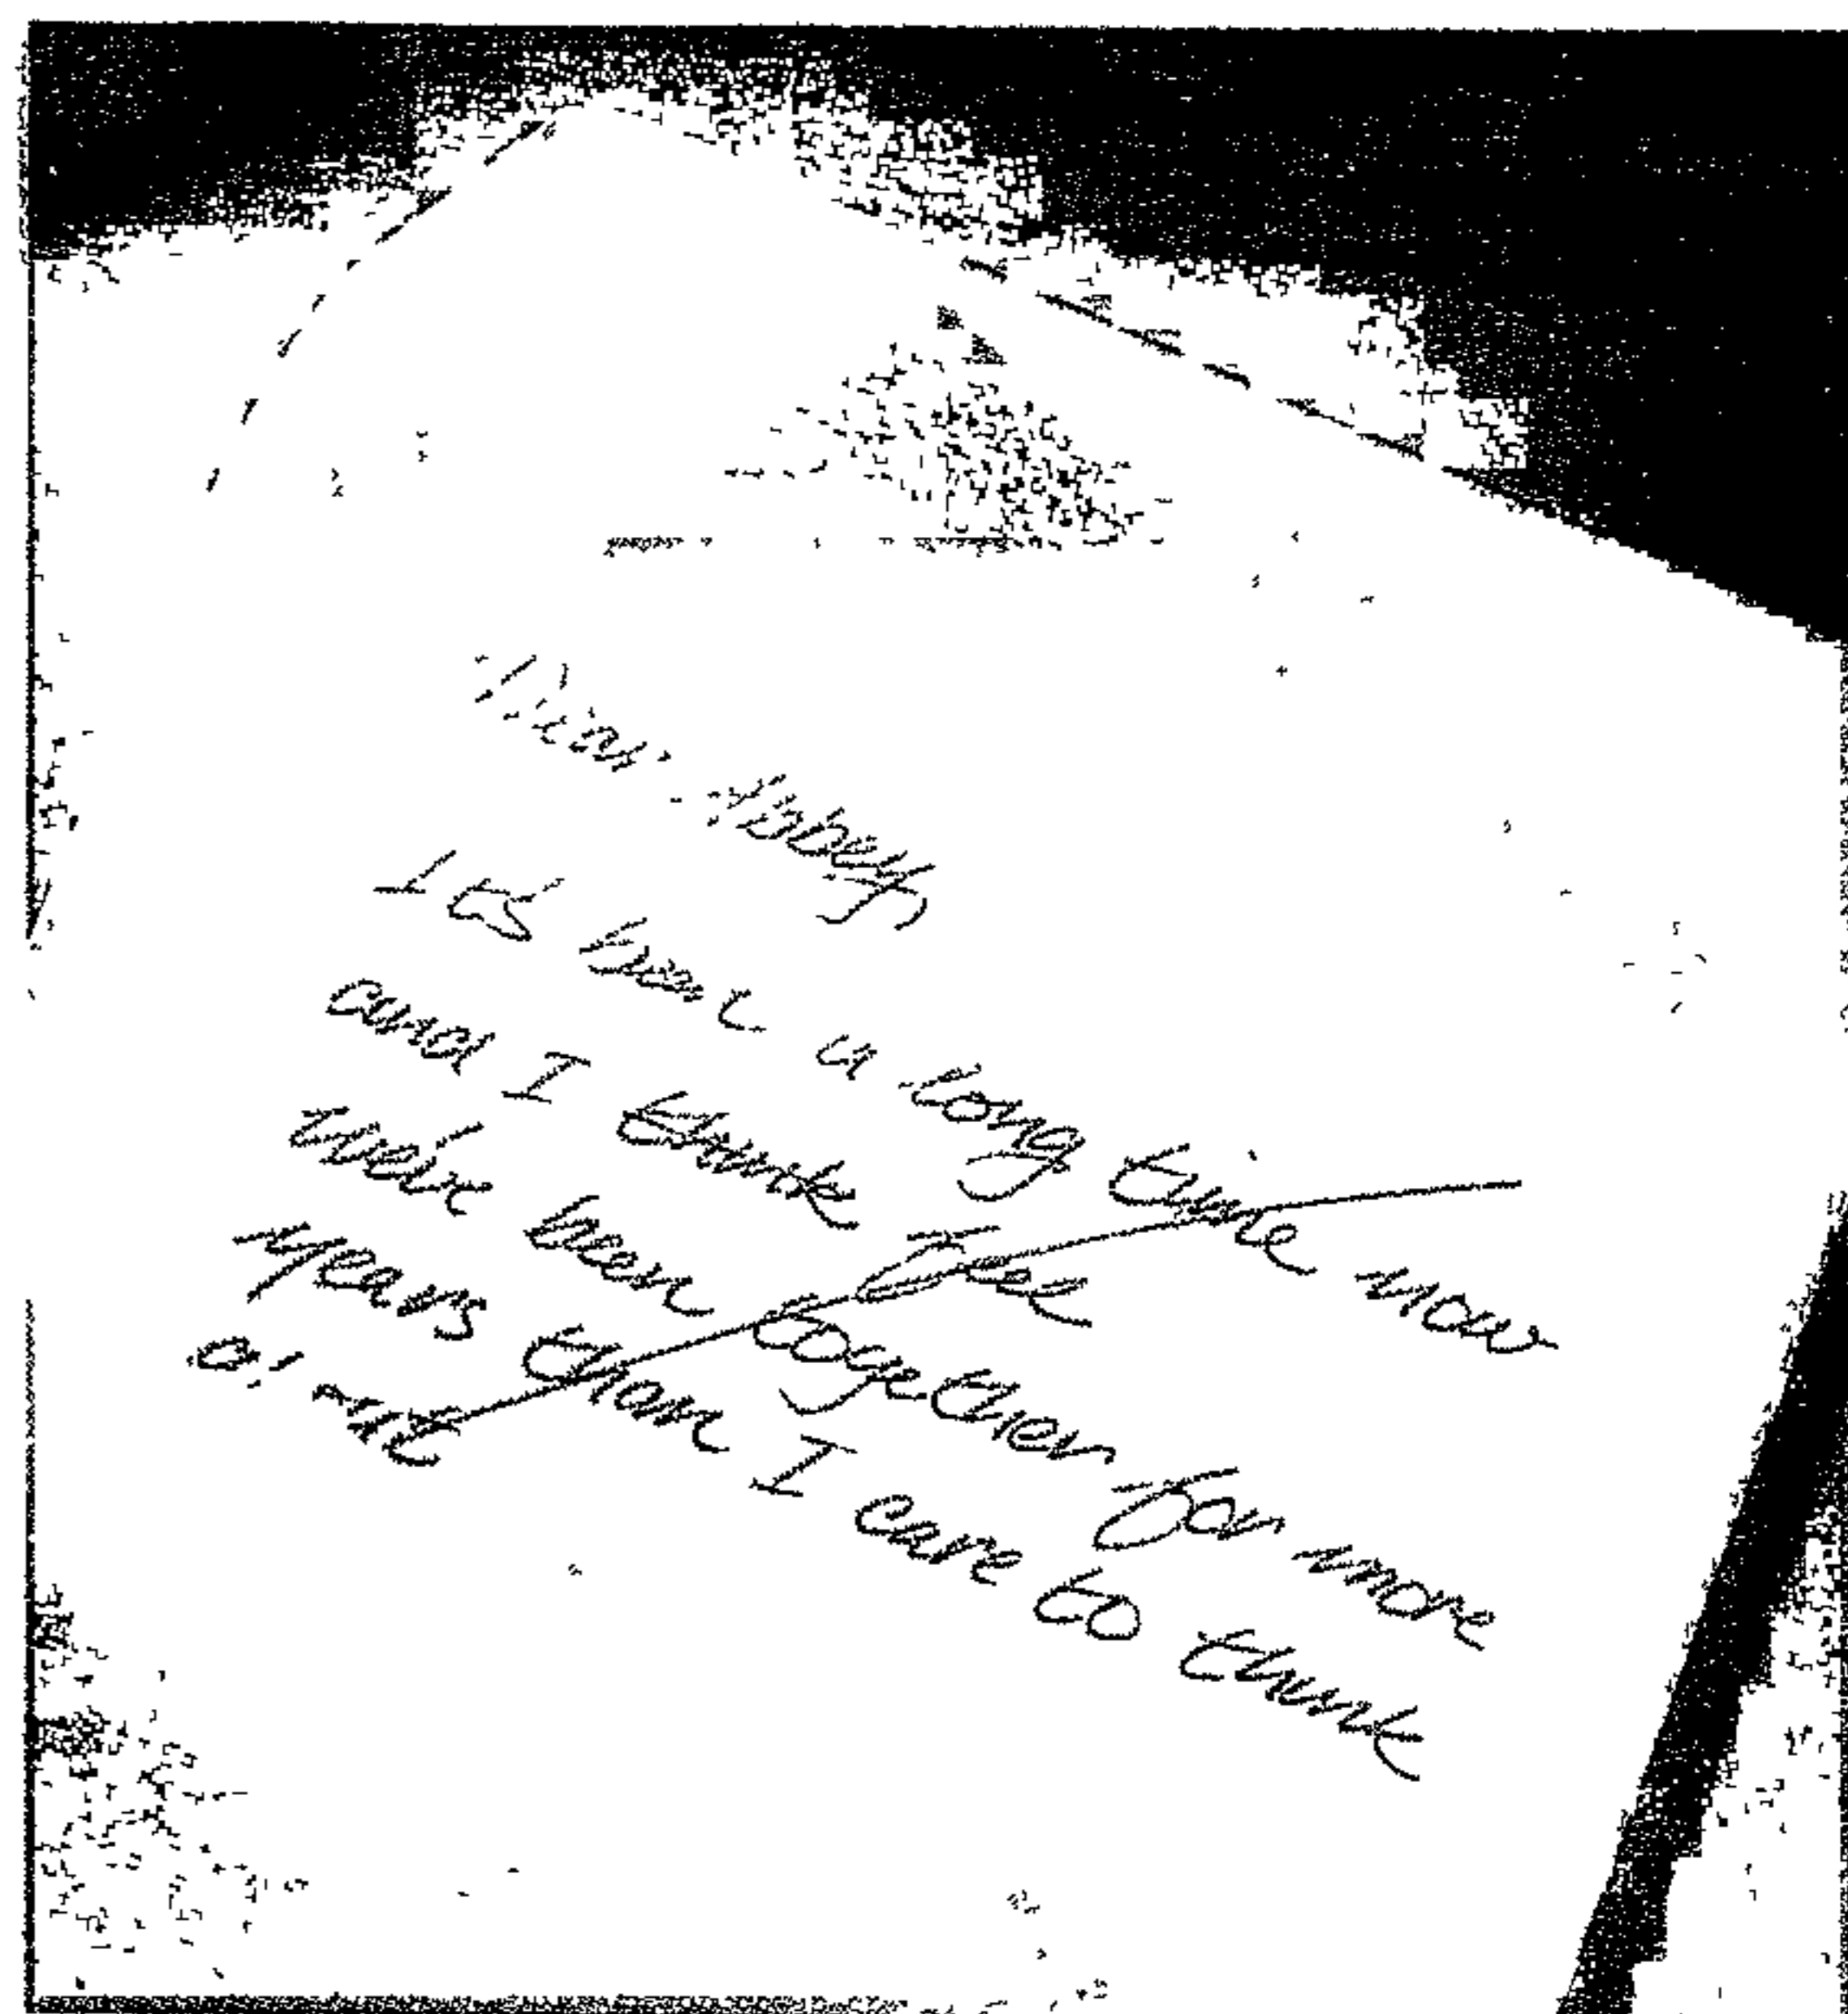 Dear Abbey,
Its been a long time now
and I think I feel
we've been together for more
years than I care to think